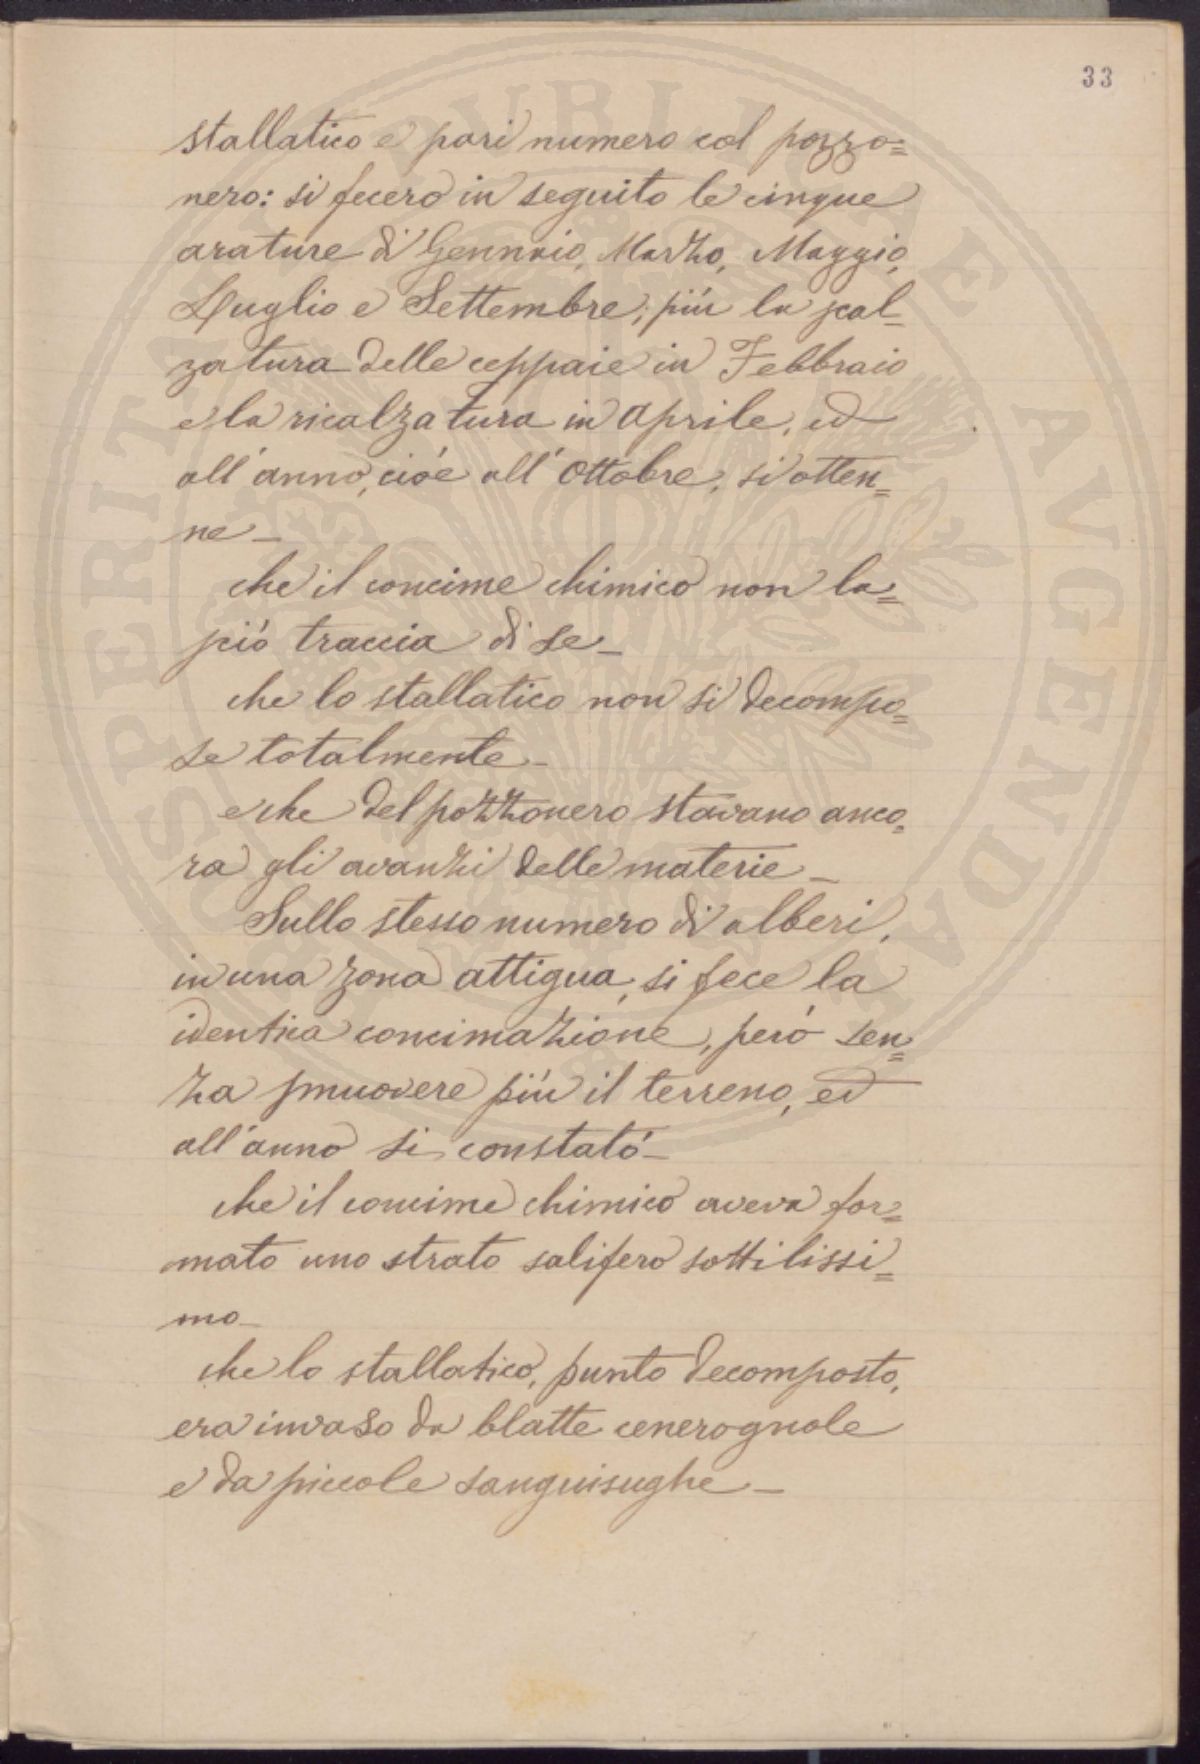 33
stallatico e pari numero col pozzo=
nero: si fecero in seguito le cinque
arature di Gennaio, Marzo, Maggio,
Luglio e Settembre; più la scal=
zatura delle ceppaie in Febbraio
e la ricalzatura in Aprile, ed
all'anno, cioè all'Ottobre, si otten=
ne—
che il concime chimico non la=
sciò traccia di se—
che lo stallatico non si decompo=
se totalmente—
e che del pozzonero stavano anco=
ra gli avanzi delle materie—
Sullo stesso numero di alberi,
in una zona attigua, si fece la
identica concimazione, però sen=
za smuovere più il terreno, ed
all'anno si constatò—
che il concime chimico aveva for=
mato uno strato salifero sottilissi=
mo—
che lo stallatico, punto decomposto,
era invaso da blatte cenerognole
e da piccole sanguisughe—